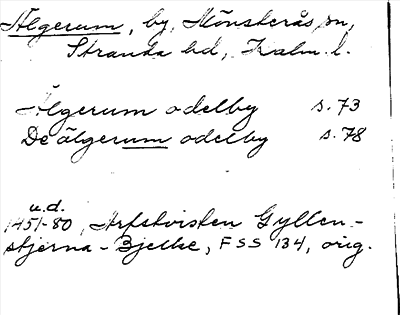 Älgerum, by, Mönsterås sn,
Stranda hd, Kalm. l.
Älgerum odelby s. 73
De älgerum odelby s. 78
u.d.
1451-80, Arfstvisten Gyllen-
stjerna - Bjelke, FSS 134, orig.